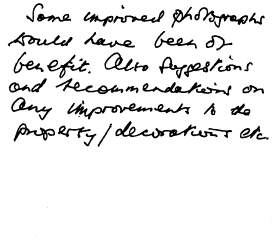 Some improved photographs
would have been of
benefit. Also suggestions
and recommendations on
any improvements to the
property/decorations etc